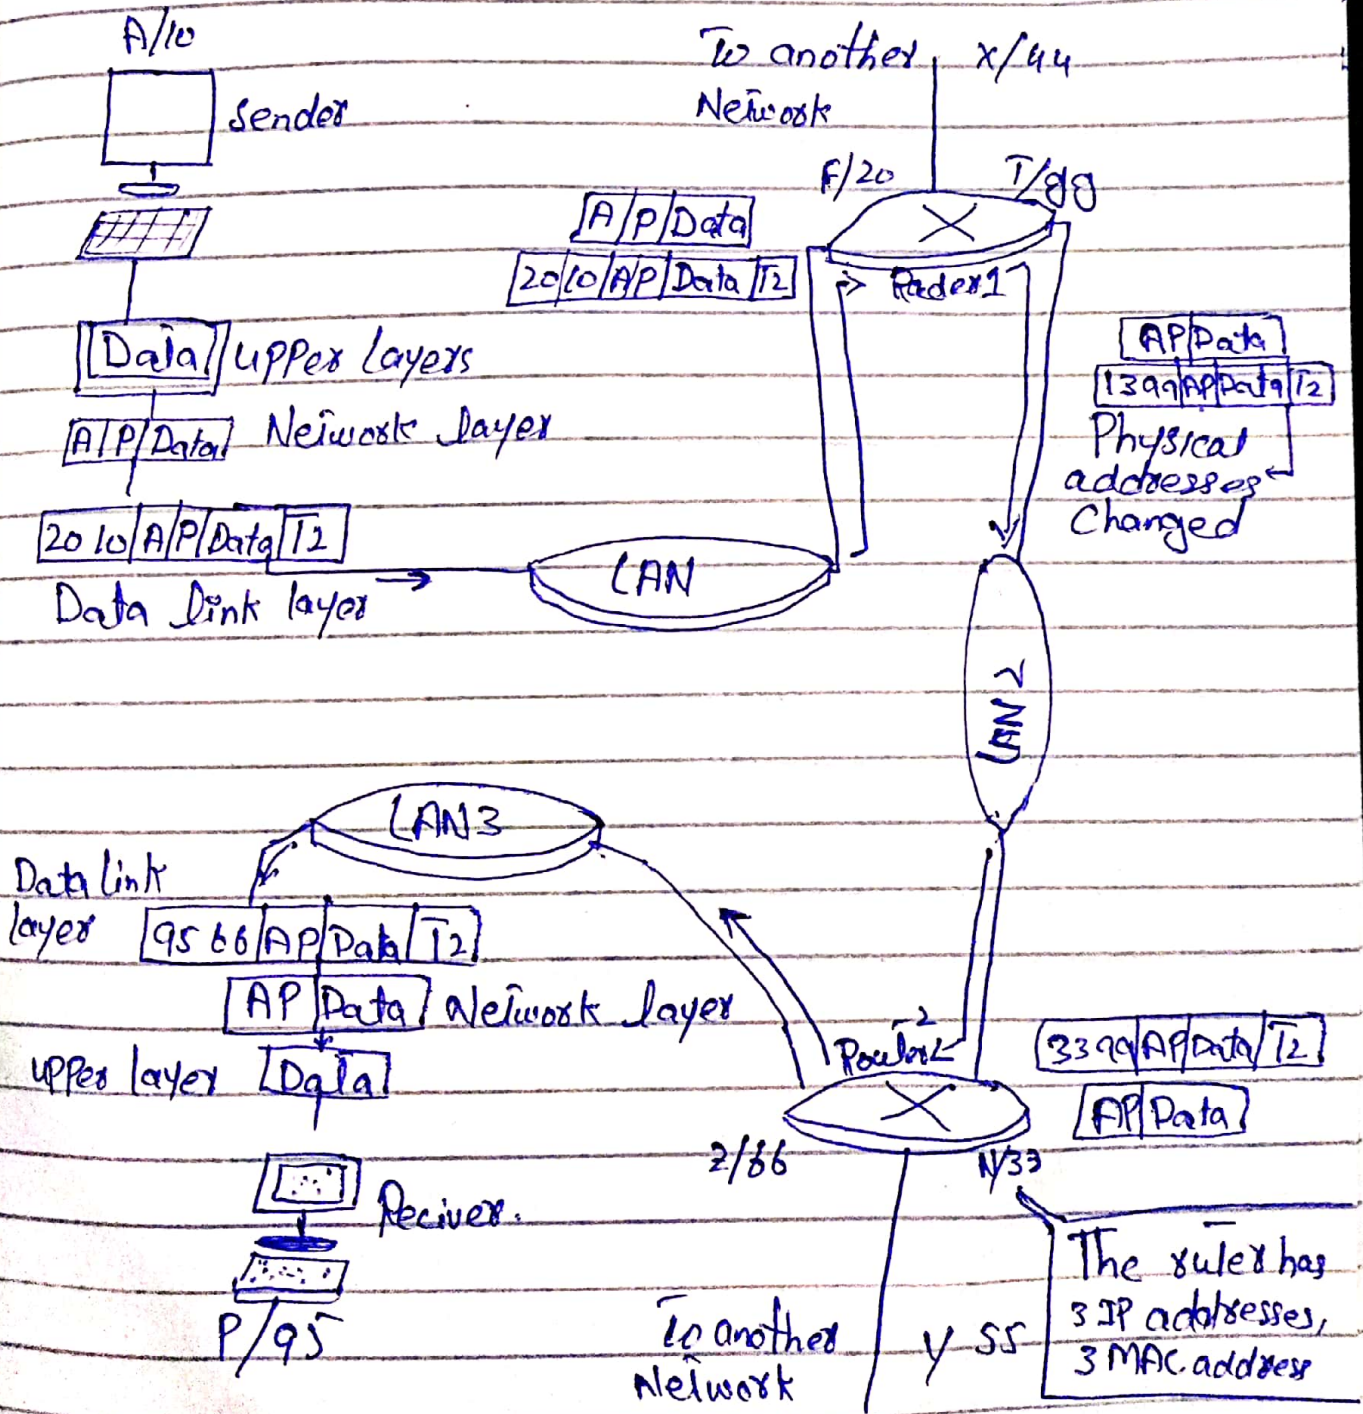 A/10
sender
To another
Network
X/44
F/20
T/99
A|P|Data
20|10|A|P|Data|T2
Router1
Data
Upper layers
A|P|Data
Network layer
20 10|A|P|Data|T2
Data link layer
LAN
AP|Data
AP|Data|T2
Physical
addresses
Changed
LAN 2
LAN3
Data link
layer
95 66|AP|Data|T2
AP|Data
Network layer
upper layer
Data
Reciver.
P/95
Router 2
AP|Data|T2
AP|Data
Z/66
N/33
To another
Network
Y 55
The ruter has
3 IP addresses,
3 MAC address